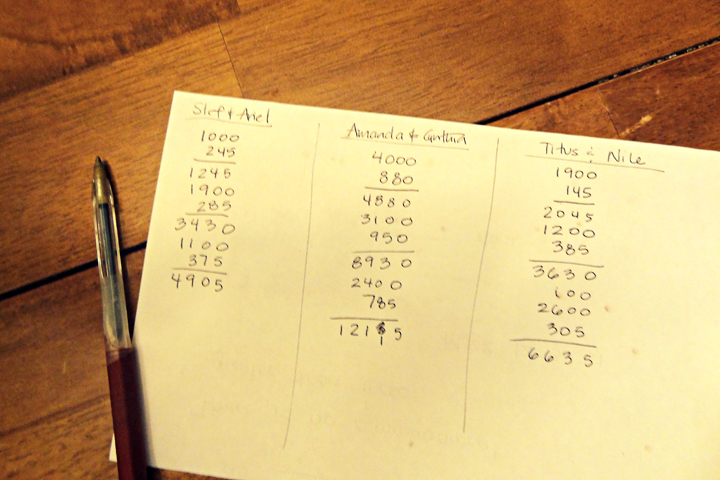 Stef & Ariel
1000
245
1245
1900
285
3430
1100
375
4905
Amanda & Cynthia
4000
880
4880
3100
950
8930
2400
785
12115
Titus & Nile
1900
145
2045
1200
385
3630
100
2600
305
6635